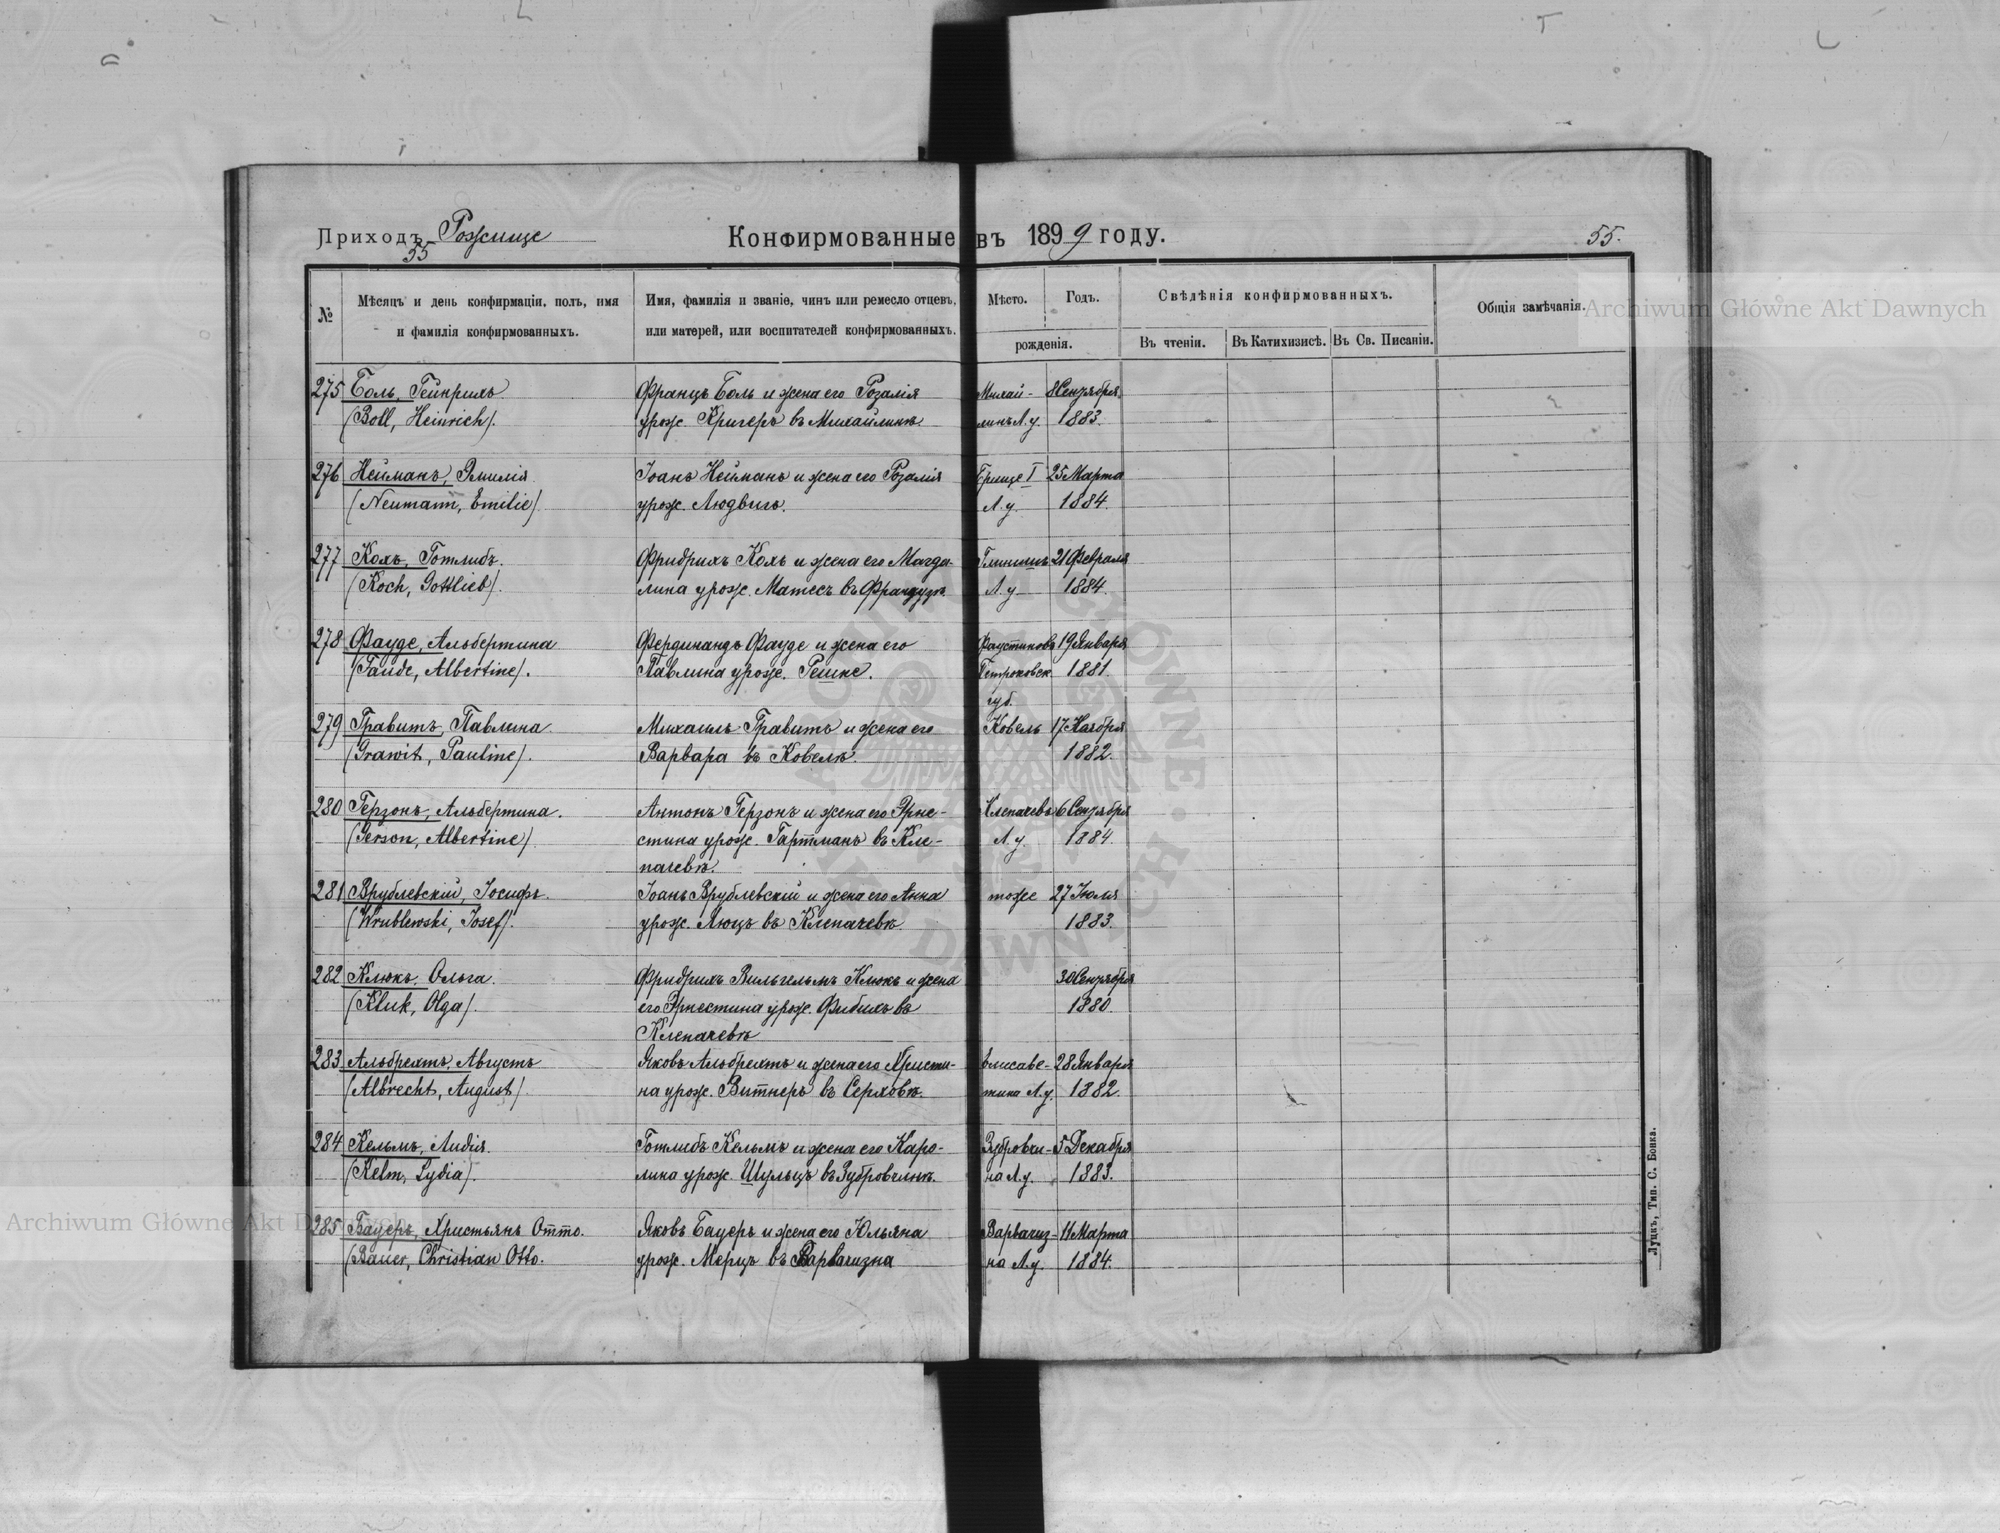 Приходъ Рожище
55
Конфирмованные въ 1899 году.
55.
№
Мѣсяцъ и день конфирмаціи, полъ, имя
и фамилія конфирмованныхъ.
Имя, фамилія и званіе, чинъ или ремесло отцевъ,
или матерей, или воспитателей конфирмованныхъ.
Мѣсто.
Годъ.
рожденія.
Свѣдѣнія конфирмованныхъ.
Въ чтеніи.
Въ Катихизисѣ.
Въ Св. Писаніи.
Общія замѣчанія.
Archiwum Główne Akt Dawnych
275 Боль, Гейнрихъ Францъ Боль и жена его Розалія Михай- 8 Сентября
(Boll, Heinrich). урож. Кригеръ въ Михайлинѣ линъ Л. у. 1883.
276 Нейманъ, Эмилія Іоанъ Нейманъ и жена его Розалія Брище I 25 Марта
(Neumann, Emilie) урож. Людвигъ. Л. у. 1884.
277 Кохъ, Готлибъ. Фридрихъ Кохъ и жена его Магда- 21 Февраля
(Koch, Gottlieb). лина урож. Матесъ въ Л. у 1884.
278 Фауде, Альбертина Фердинандъ Фауде и жена его Фаустиновъ 19 Января
(Faude, Albertine). Павлина урож. Решке. Петроковск. 1881.
губ.
279 Гравитъ, Павлина Михаилъ Гравитъ и жена его Ковель 17 Ноября
(Grawit, Pauline). Варвара въ Ковелѣ. 1882.
280 Герзонъ, Альбертина. Антонъ Герзонъ и жена его Эрне- Клепачевъ 6 Сентября
(Gerson, Albertine) стина урож. Гартманъ въ Кле- Л. у. 1884.
пачевѣ.
281 Врублевскій, Іосифъ. Іоанъ Врублевскій и жена его Анна тоже 27 Іюля
(Wrublewski, Josef). урож. Люцъ въ Клепачевѣ 1883.
282 Клюкъ, Ольга. Фридрихъ Вильгельмъ Клюкъ и жена 30 Сентября
(Kluk, Olga). его Эрнестина урож. Фибихъ въ 1880.
Клепачевѣ
283 Альбрехтъ, Августъ Яковъ Альбрехтъ и жена его Христи- Елисаве- 28 Января
(Albrecht, August) на урож. Витнеръ въ Серховѣ. тина Л. у. 1882.
284 Кельмъ, Лидія. Готлибъ Кельмъ и жена его Каро- Зубровчи- 5 Декабря
(Kelm, Lydia). лина урож. Шульцъ въ Зубровчинѣ. на Л. у. 1883.
285 Бауеръ, Христьянъ Отто. Яковъ Бауеръ и жена его Юльяна Варвачиз- 11 Марта
(Bauer, Christian Otto. урож. Мерцъ въ Варвачизна на Л. у. 1884.
Луцкъ, Тип. С. Бонка.
Archiwum Główne Akt Dawnych